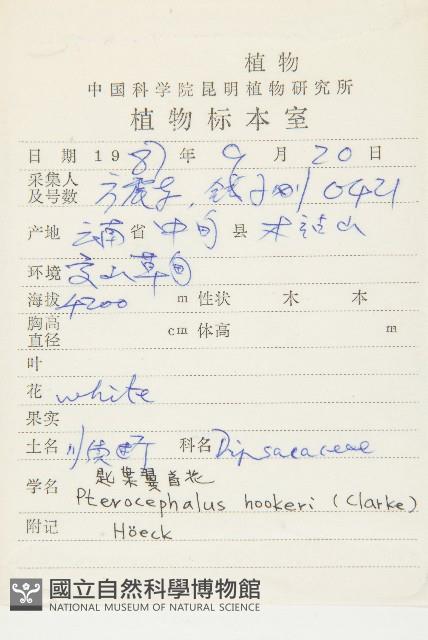 植物
中国科学院昆明植物研究所
植物标本室
日期 1987年 9月 20日
采集人
及号数 0421
产地 云南省 中甸县
环境 高山草甸
海拔 4200 m 性状 木 本
胸高
直径 cm 体高 m
叶
花 white
果实
土名 科名 Dipsacaceae
学名 匙葉翼首花
Pterocephalus hookeri (Clarke)
附记 Höeck
國立自然科學博物館
NATIONAL MUSEUM OF NATURAL SCIENCE